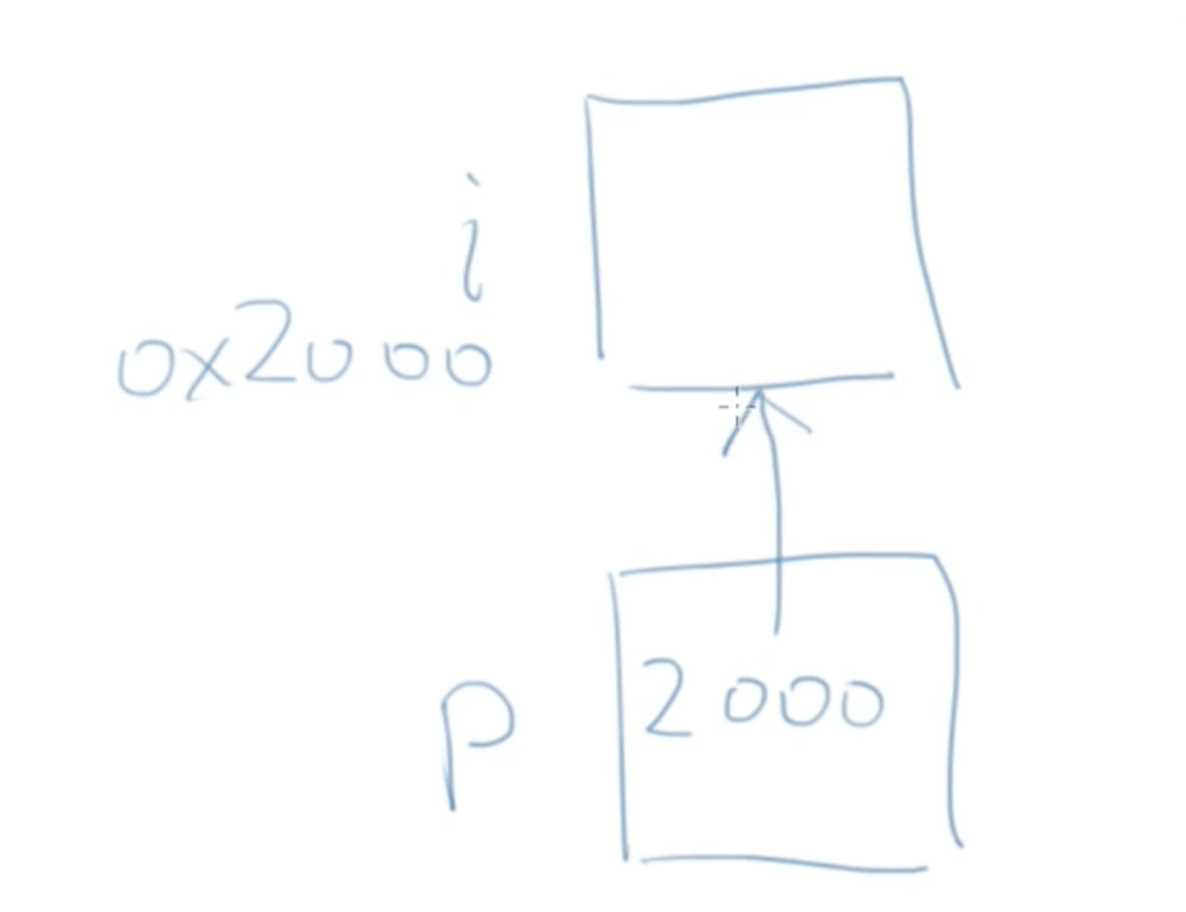 i
0x2000
p
2000